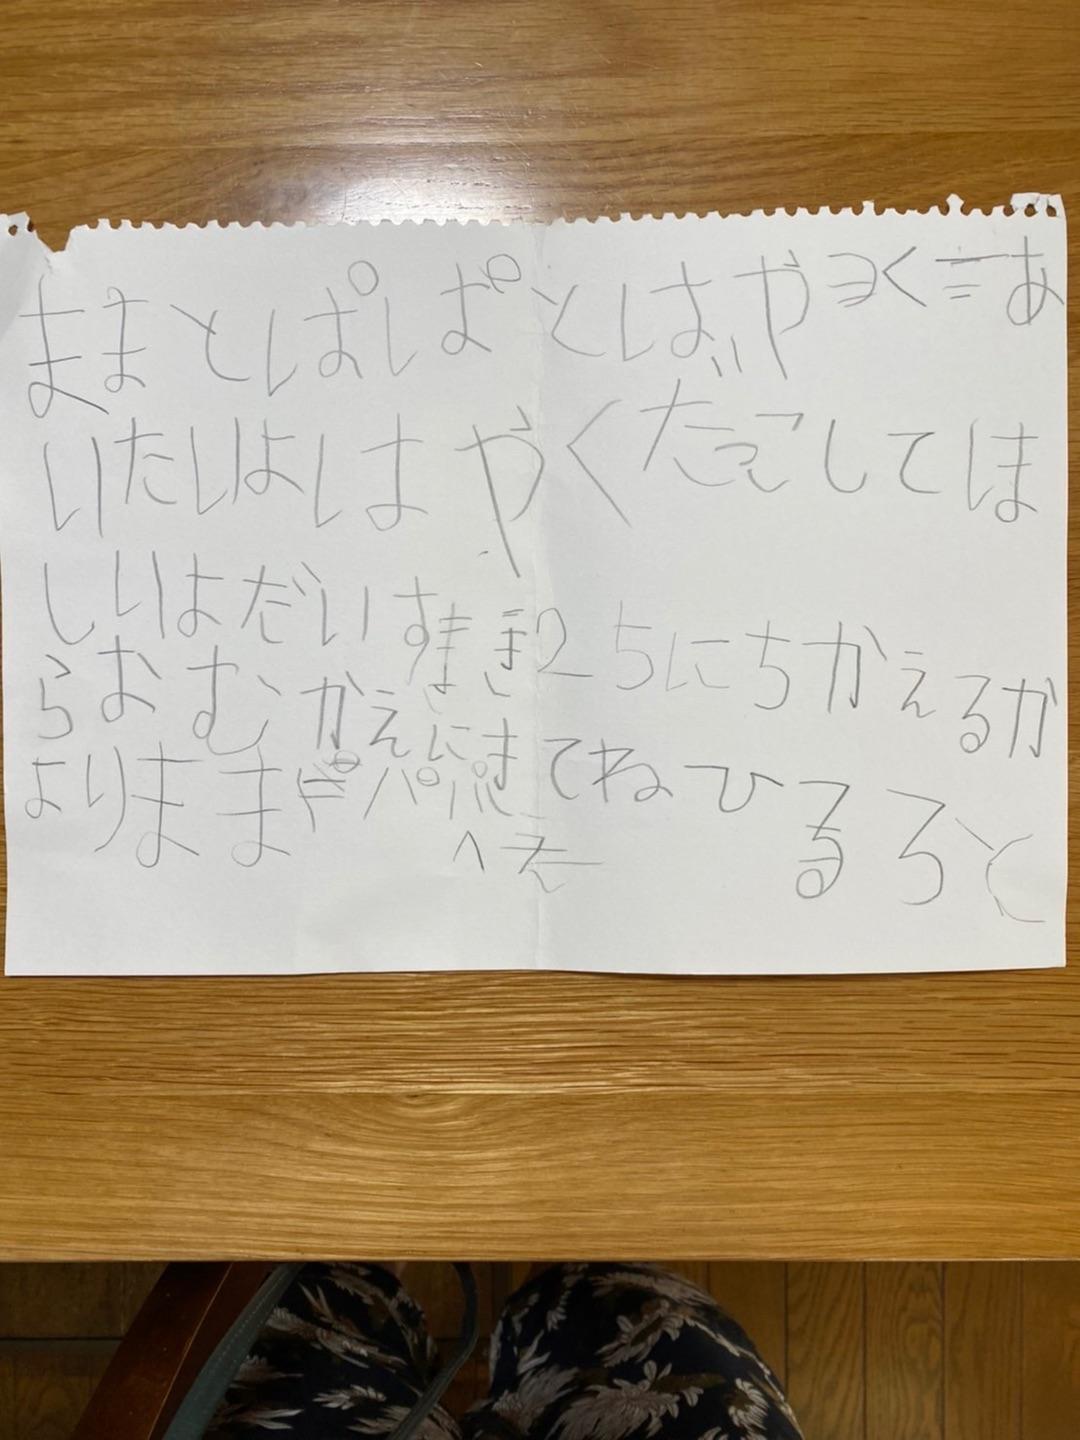 ままとぱぱとはやくあ
いたいよはやくだっこしてほ
しいよだいすき25にちかえるか
らおむかえにきてね
よりままパパへ